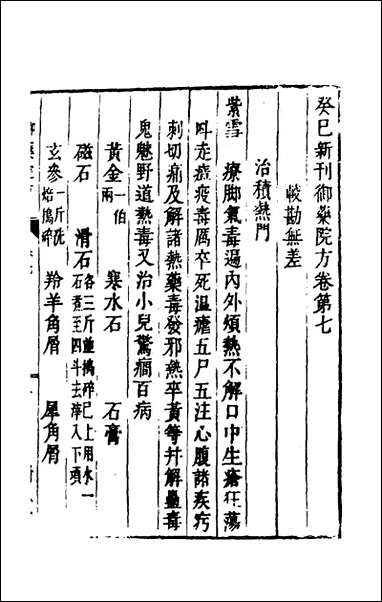 癸巳新刊御藥院方卷第七
䡖勘無差
治積熱門
紫雪　療脚氣毒遍內外煩熱不解口中生瘡狂蕩
叫走瘟疫毒厲卒死温瘧五尸五注心腹諸疾㽲
刺切痛及解諸熱藥毒發邪熱卒黃等并解蠱毒
鬼魅野道熱毒又治小兒驚癎百病
黃金一伯兩　寒水石　石膏
磁石　滑石各三斤並搗碎已上用水一石煮至四斗去滓入下頭
玄參一斤洗焙搗碎　羚羊角屑　犀角屑